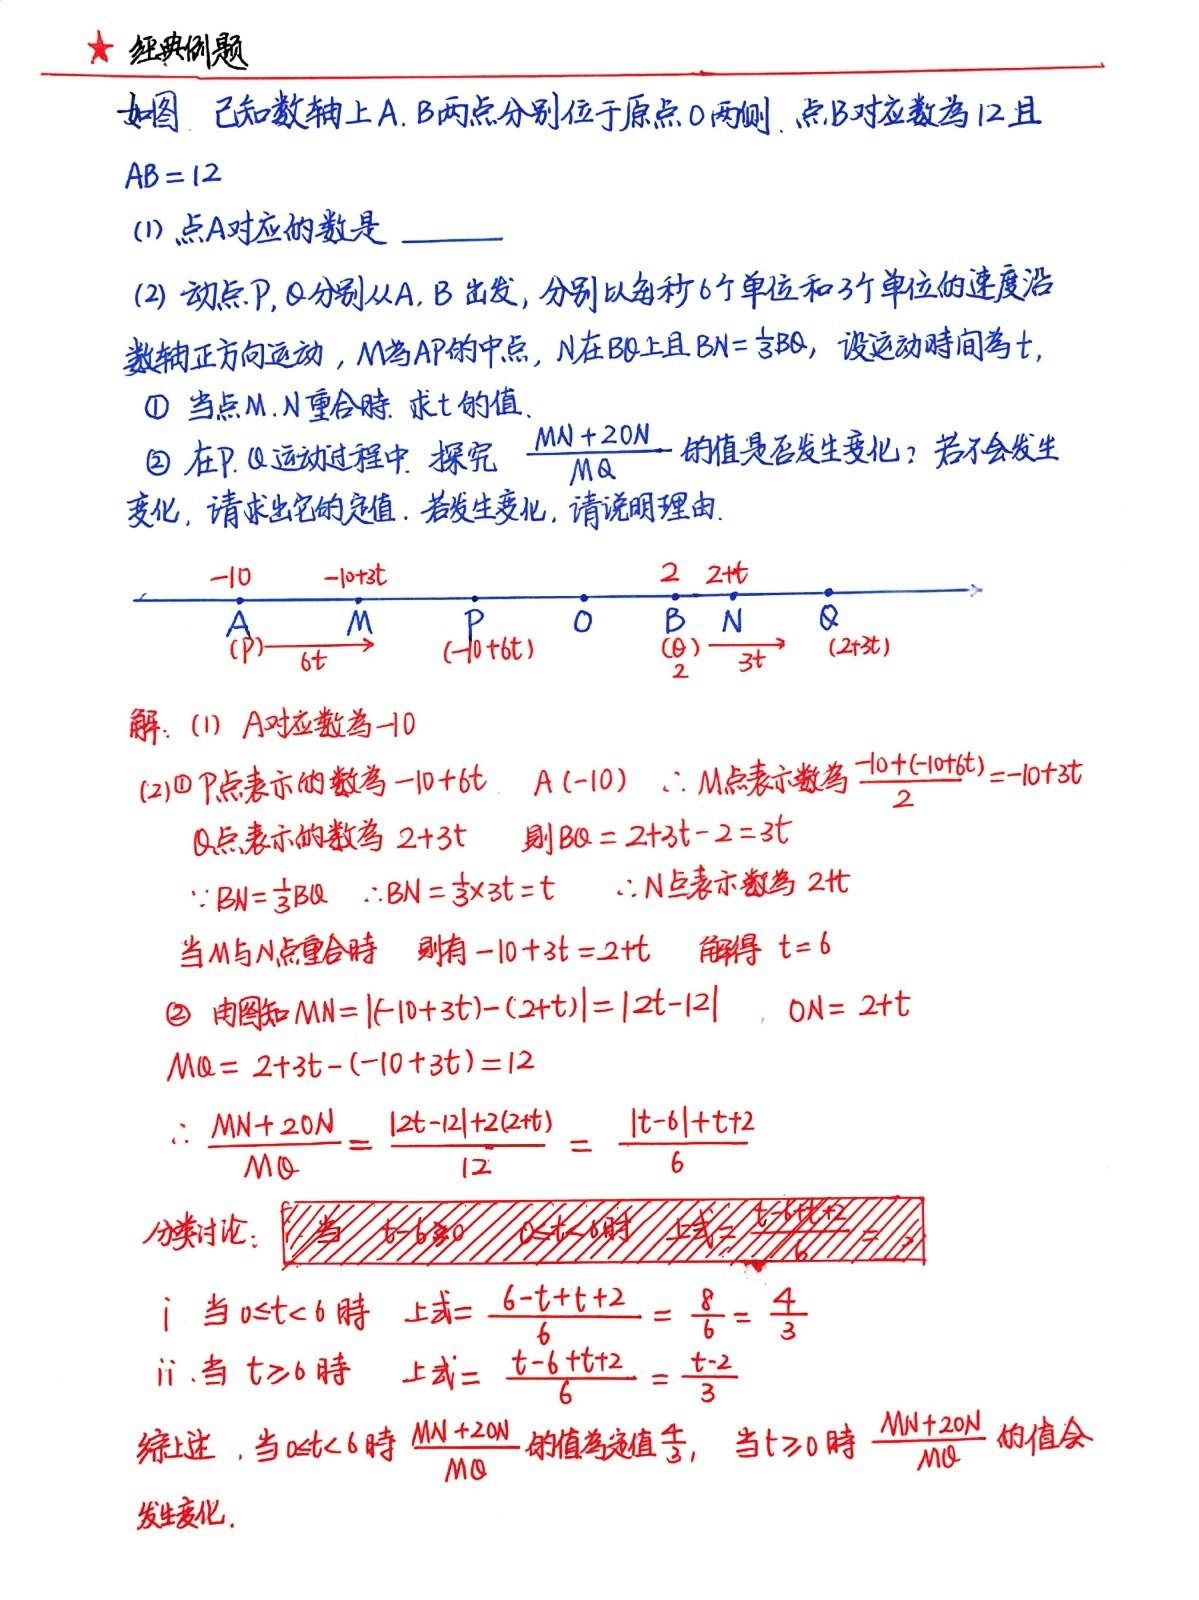 ★ 经典例题
如图 已知数轴上A.B两点分别位于原点O两侧.点B对应数為12且
AB=12
(1) 点A对应的数是 ______
(2) 动点.P,Q分别从A.B出发,分别以每秒6个单位和3个单位的速度沿
数轴正方向运动,M為AP的中点,N在BQ上且BN=1/3BQ,设运动時间為t,
① 当点M.N重合時.求t的值.
② 在P.Q运动过程中.探究 (MN+2ON)/MQ 的值是否发生变化?若不会发生
变化,请求出它的定值.若发生变化,请说明理由.
-10 -10+3t 2 2+t
A M P O B N Q
(P) 6t (-10+6t) (Q) 2 3t (2+3t)
解:(1) A对应数為-10
(2)① P点表示的数為-10+6t A(-10) ∴M点表示数為 (-10+(-10+6t))/2 =-10+3t
Q点表示的数為 2+3t 則BQ=2+3t-2=3t
∵BN=1/3BQ ∴BN=1/3×3t=t ∴N点表示数為 2+t
当M与N点重合時 則有-10+3t=2+t 解得 t=6
② 由图知MN=|(-10+3t)-(2+t)|=|2t-12|,ON=2+t
MQ=2+3t-(-10+3t)=12
∴ (MN+2ON)/MQ = (|2t-12|+2(2+t))/12 = (|t-6|+t+2)/6
分类讨论: 当 t-6≥0 0≤t<6時 上式= (t-6+t+2)/6 =
i 当0≤t<6時 上式= (6-t+t+2)/6 = 8/6 = 4/3
ii.当 t≥6時 上式= (t-6+t+2)/6 = (t-2)/3
综上述,当0≤t<6時 (MN+2ON)/MQ 的值為定值4/3, 当t≥0時 (MN+2ON)/MQ 的值会
发生变化.